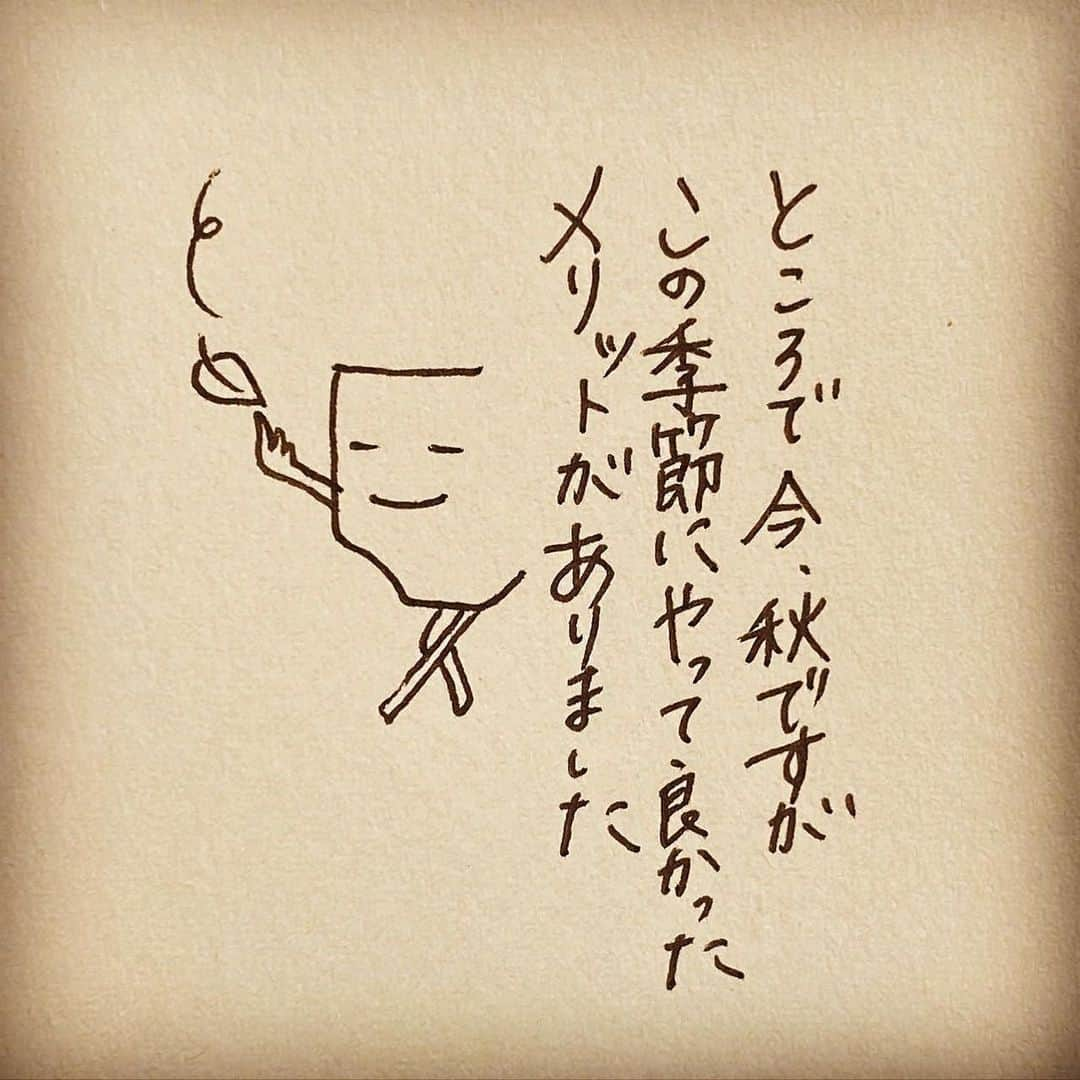 ところで今、秋ですが
この季節にやって良かった
メリットがありました